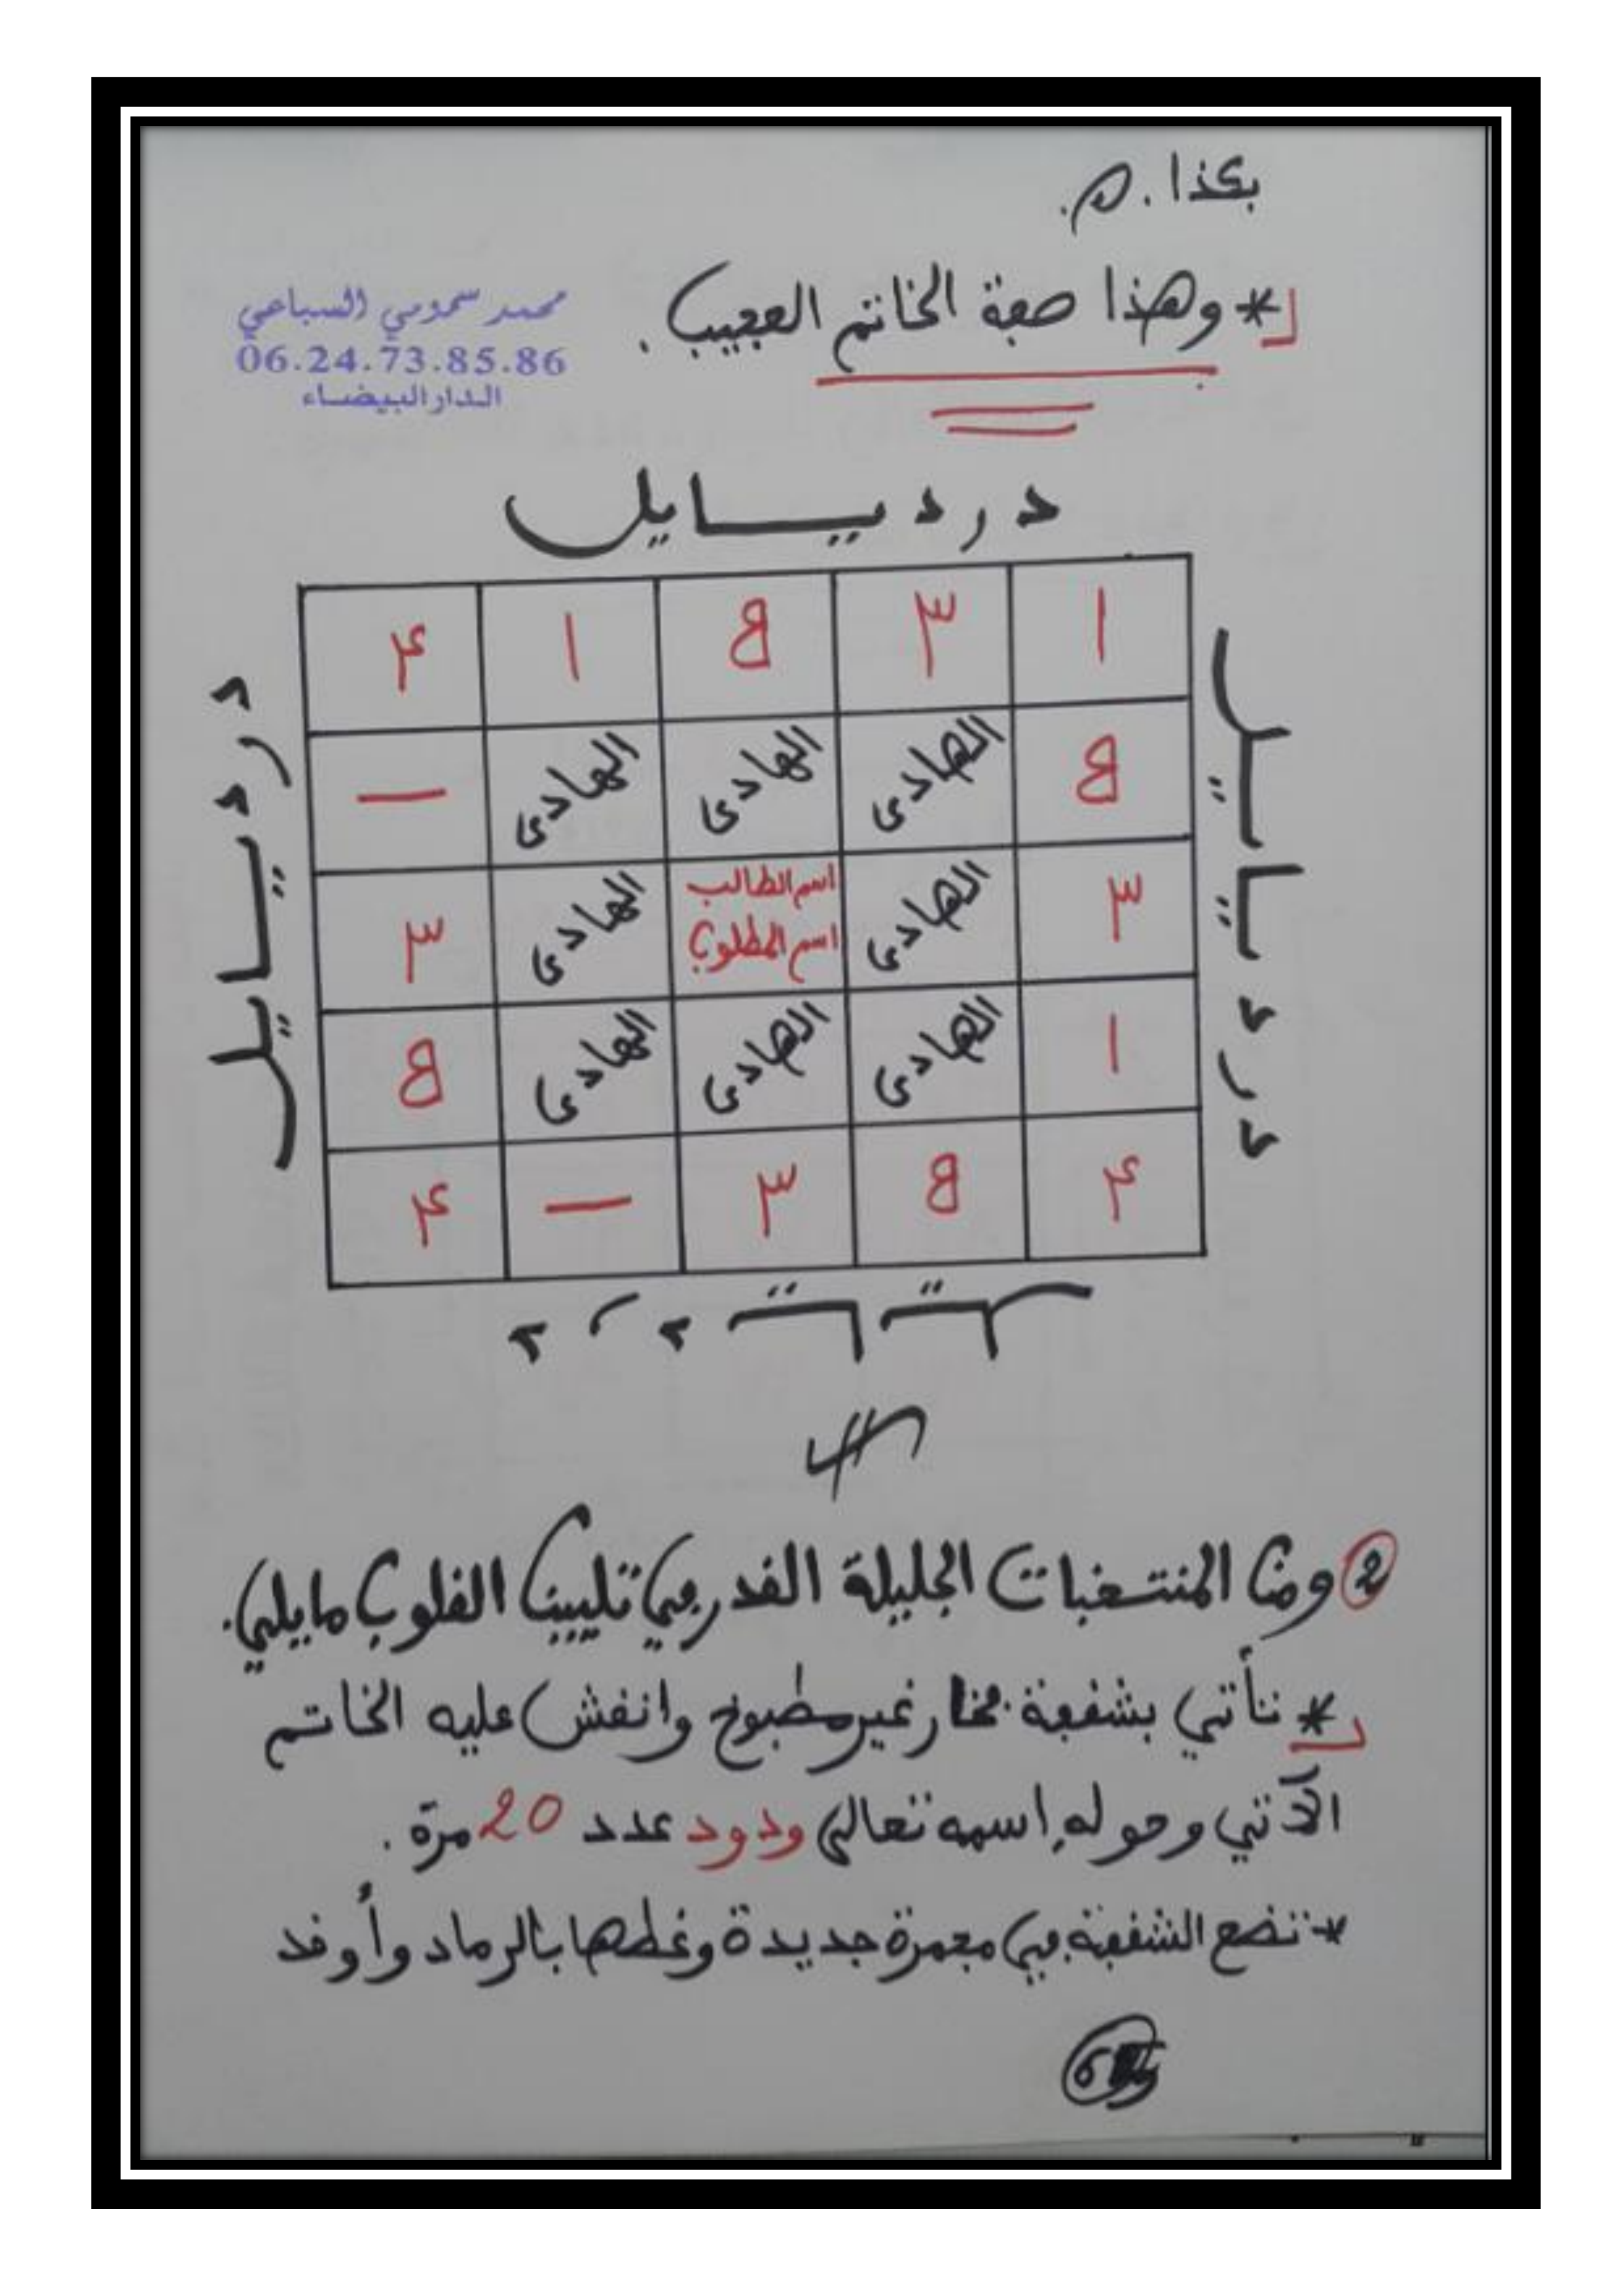 بكذا . ه.
* وهذا صفة الخاتم العجيب .
محمد سمومي السباعي
06.24.73.85.86
الدار البيضاء
درديايل
١ ٣ 8 ١ ۴
8 الهادى الهادى الهادى —
٣ الهادى اسم الطالب اسم المطلوب الهادى ٣
١ الهادى الهادى الهادى 8
۴ 8 ٣ — ۴
درديايل
درديايل
درديايل
2 ومن المنتخبات الجليلة القدر في تليين القلوب ما يلي.
* نأتي بشقفة فخار غير مطبوخ وانقش عليه الخاتم
الآتي وحوله إسمه تعالى ودود عدد 20 مرة .
* تضع الشقفة في مجمرة جديدة وغطها بالرماد وأوقد